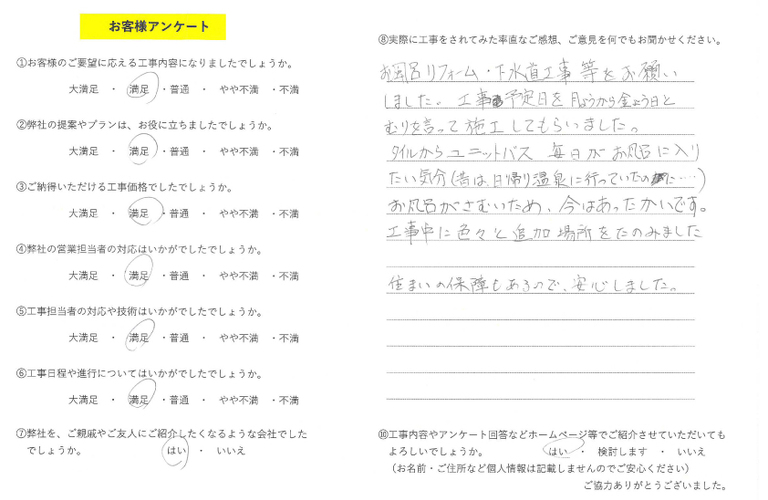 お客様アンケート
①お客様のご要望に応える工事内容になりましたでしょうか。
大満足 ・ 満足 ・普通 ・ やや不満 ・不満
②弊社の提案やプランは、お役に立ちましたでしょうか。
大満足 ・ 満足 ・普通 ・ やや不満 ・不満
③ご納得いただける工事価格でしたでしょうか。
大満足 ・ 満足 ・普通 ・ やや不満 ・不満
④弊社の営業担当者の対応はいかがでしたでしょうか。
大満足 ・ 満足 ・普通 ・ やや不満 ・不満
⑤工事担当者の対応や技術はいかがでしたでしょうか。
大満足 ・ 満足 ・普通 ・ やや不満 ・不満
⑥工事日程や進行についてはいかがでしたでしょうか。
大満足 ・ 満足 ・普通 ・ やや不満 ・不満
⑦弊社を、ご親戚やご友人にご紹介したくなるような会社でした
でしょうか。 はい ・ いいえ
⑧実際に工事をされてみた率直なご感想、ご意見を何でもお聞かせください。
お風呂リフォーム・下水道工事等をお願い
しました。工事予定日を月ようから金よう日と
むりを言って施工してもらいました。
タイルからユニットバス 毎日がお風呂に入り
たい気分(昔は、日帰り温泉に行っていたのに…)
お風呂がさむいため、今はあったかいです。
工事中に色々と追加場所をたのみました
住まいの保障もあるので、安心しました。
⑩工事内容やアンケート回答などホームページ等でご紹介させていただいても
よろしいでしょうか。 はい ・ 検討します ・ いいえ
(お名前・ご住所など個人情報は記載しませんのでご安心ください)
ご協力ありがとうございました。